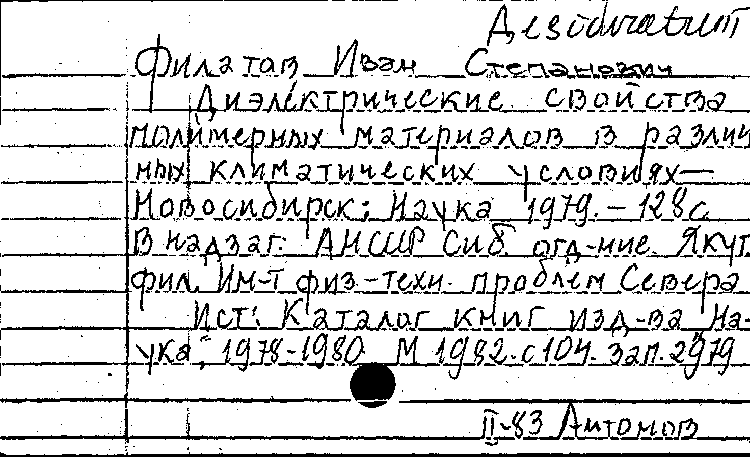 Desideratum
Филатов Иван Степанович
Диэлектрические свойства
полимерных материалов в различ
ных климатических условиях—
Новосибирск: Наука 1979. – 128 с.
В надзаг: АНСССР Сиб. отд-ние. Якут.
фил. Ин-т физ-техн. проблем Севера
Ист: Каталог книг изд-ва „На-
ука", 1978-1980 М 1982. с 104. зап. 2979
II-83 Антонов